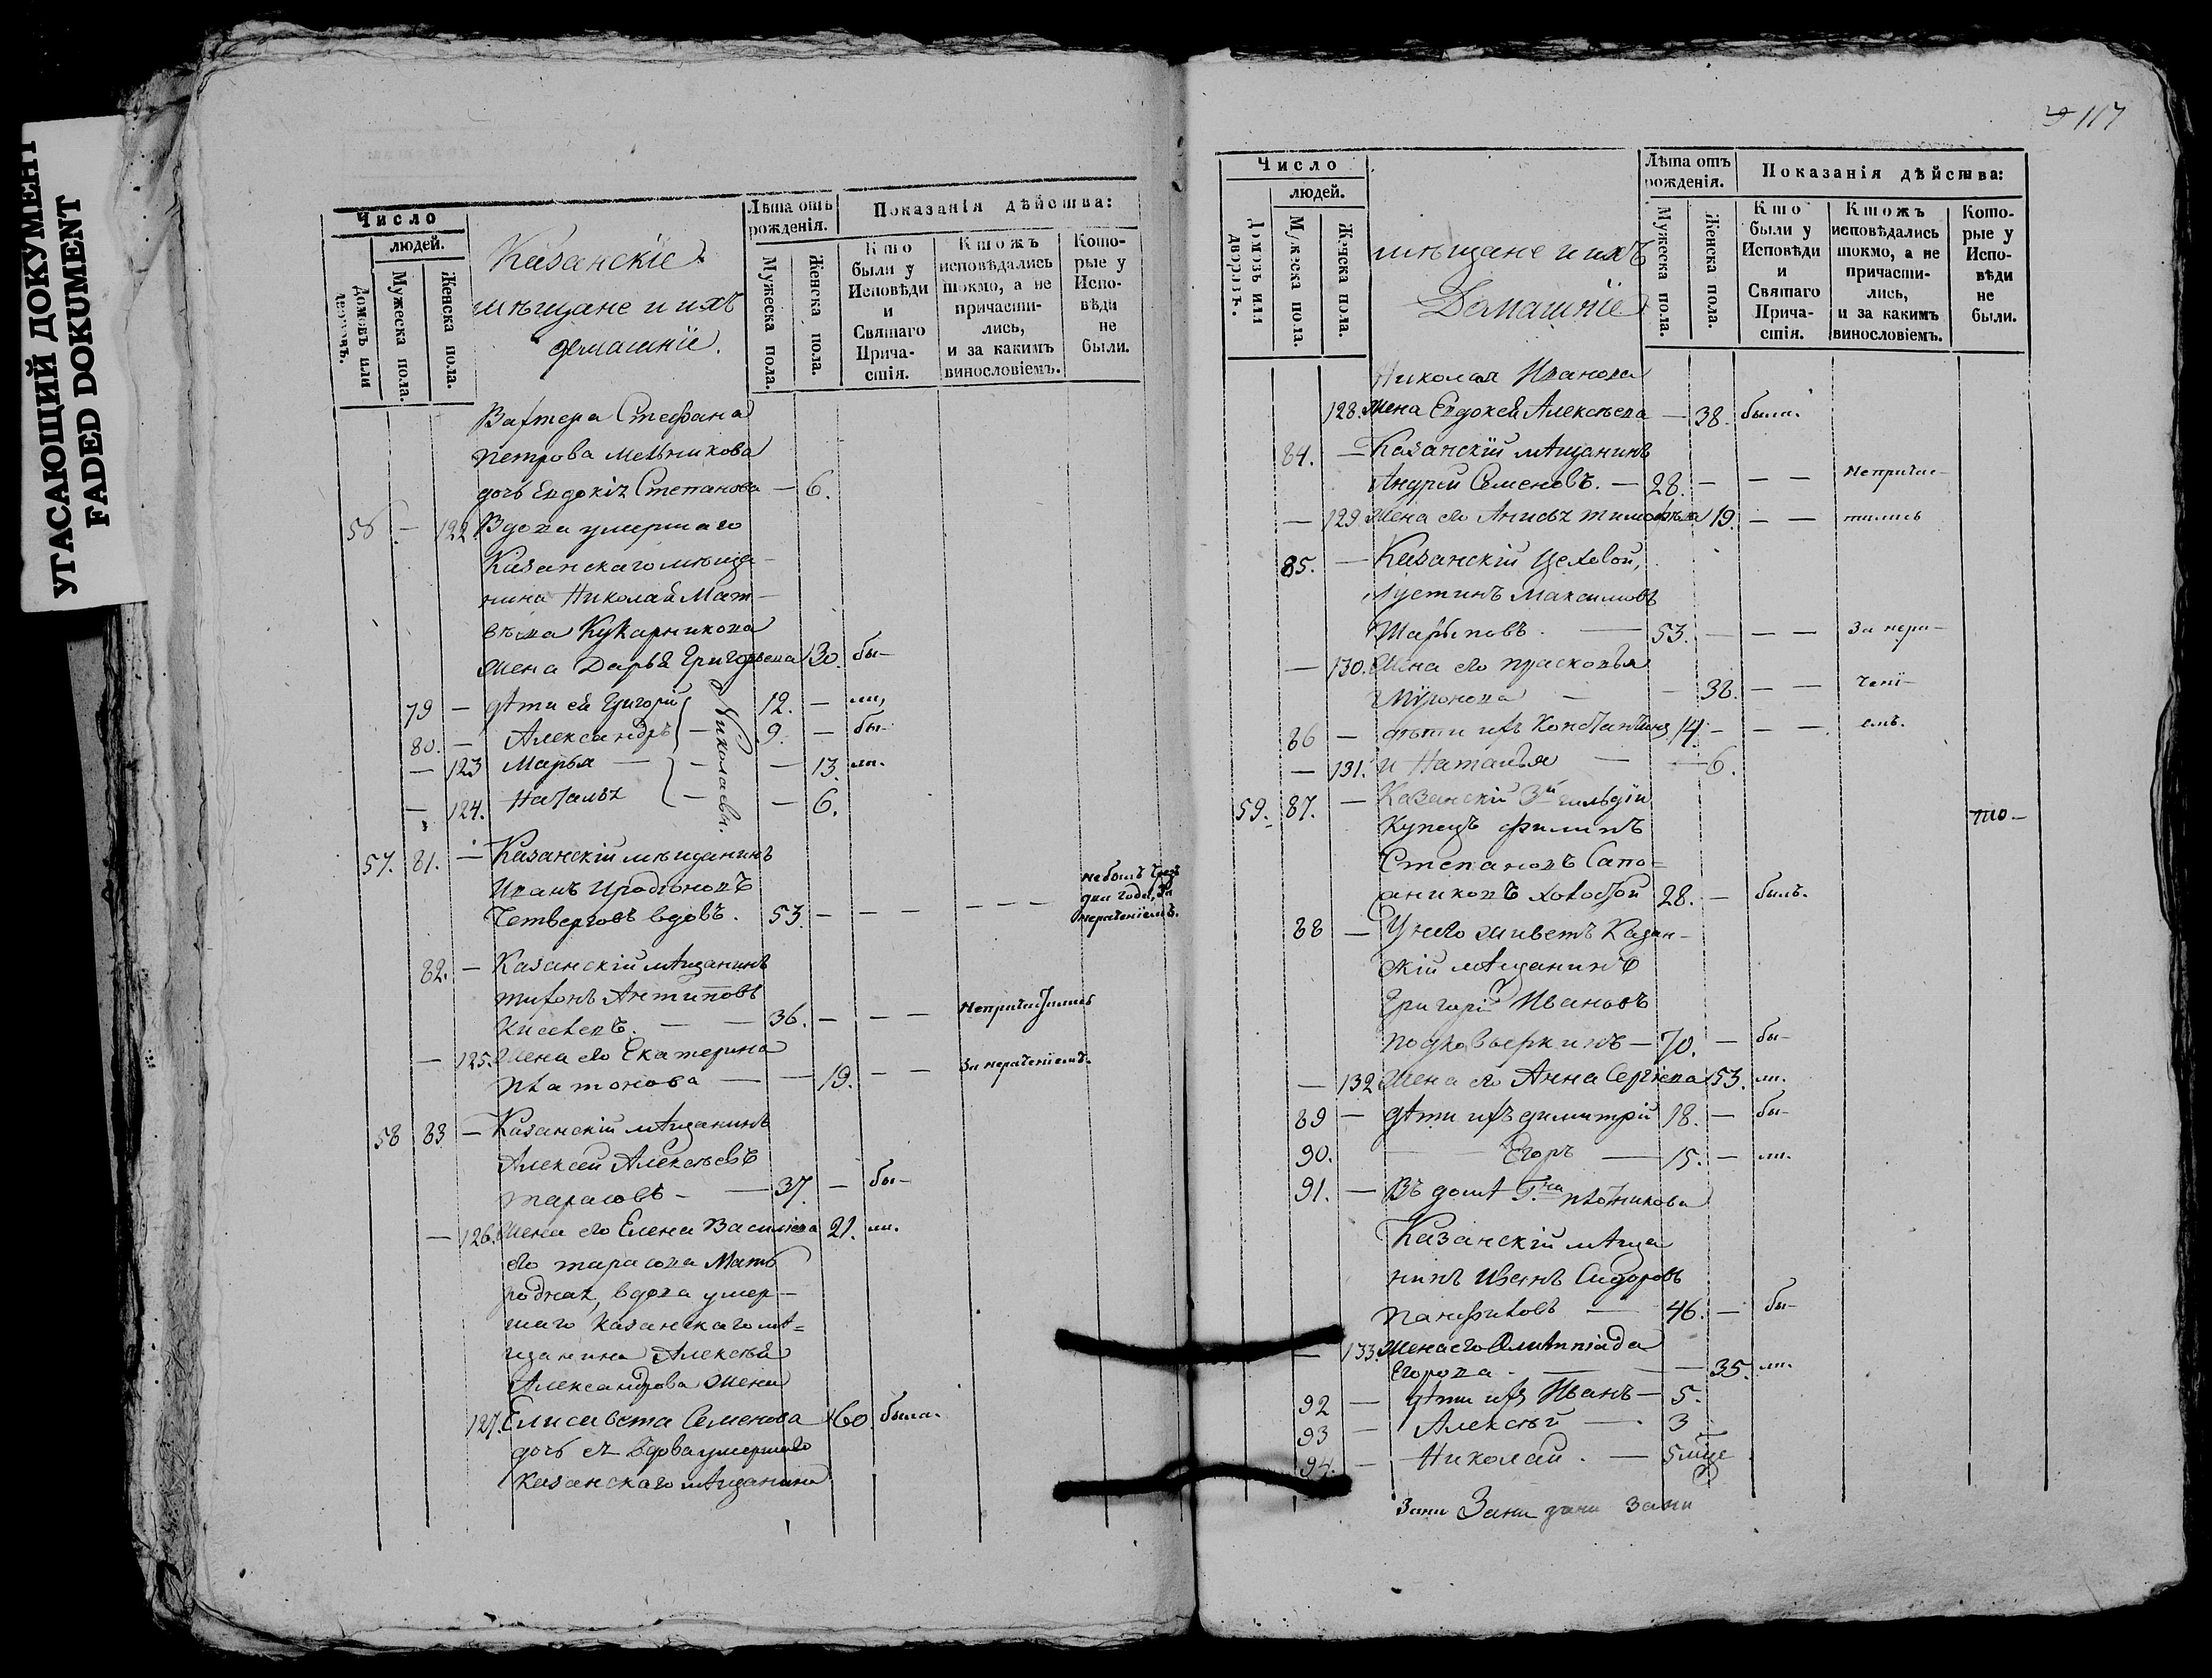 УГАСАЮЩИЙ ДОКУМЕНТ
FADED DOKUMENT
Число
людей.
Домовъ или дворовъ.
Мужеска пола.
Женска пола.
Казанскіе
мѣщане и ихъ
домашніе.
Лѣта отъ рожденія.
Мужеска пола.
Женска пола.
Показанія дѣйства:
Кто были у Исповѣди и Святаго Причастія.
Ктожъ исповѣдались токмо, а не причастились, и за какимъ винословіемъ.
Которые у Исповѣди не были.
Вахтера Стефана
Петрова Мельникова
дочь Евдокія Степанова — 6.
56 — 122 Вдова умершаго
Казанскаго мѣща-
нина Николай Мат-
вѣева Кукарникова
жена Дарья Григорьева 30. бы-
79 — дѣти ей Григорій 12. — ли,
80. — Александръ — 9. — бы-
— 123 Марья — — — 13. ли.
— 124. Наталья — — 6.
Николаевы.
57. 81. — Казанскій мѣщанинъ
Иванъ Иродіоновъ
Четверговъ вдовъ. 53. — — — — — —
не былъ
два года, за
нераченіемъ.
82. — Казанскій мѣщанинъ
Тихонъ Антиповъ
Киселевъ. — — 36. — — — Непричастились
— 125. Жена его Екатерина
Платонова — — 19. — — За нераченіемъ.
58 83 — Казанскій мѣщанинъ
Алексей Алексѣевъ
Тарасовъ — — 37. — бы-
— 126. Жена его Елена Василіева 21. ли.
его Тарасова Мать
родная, вдова умер-
шаго Казанскаго мѣ=
щанина Алексѣя
Александрова жена
127. Елисавета Семенова 60. была.
дочь ея вдова умершаго
Казанскаго мѣщанина
117
Число
людей.
Домовъ или дворовъ.
Мужеска пола.
Женска пола.
мѣщане и ихъ
Домашніе
Лѣта отъ рожденія.
Мужеска пола.
Женска пола.
Показанія дѣйства:
Кто были у Исповѣди и Святаго Причастія.
Ктожъ исповѣдались токмо, а не причастились, и за какимъ винословіемъ.
Которые у Исповѣди не были.
Николая Иванова
128. жена Евдокея Алексѣева — 38. была.
84. — Казанскій мѣщанинъ
Андрей Семеновъ. — 28. — — — Непричас-
— 129 Жена его Анисья Тимофѣева 19. — — тились
85. — Казанскій Цеховой,
Іустинъ Максимовъ
Шарыповъ. — 53. — — — За нера-
— 130. Жена его Прасковья
Миронова — — 38. — — чені-
86 — дѣти ихъ Константинъ 14. — — — емъ.
— 131. и Наталья — — 6.
59. 87. — Казанскій 3й гильдіи
Купецъ Филипъ
Степановъ Сапо-
жниковъ холостой 28. — былъ.
88 — У него живетъ Казан-
скій мѣщанинъ
Григорій Ивановъ
— 70. — бы-
— 132 Жена его Анна Сергѣева 53. ли.
89 — дѣти ихъ Димитрій 18. — бы-
90. — — Егоръ — 15. — ли.
91. — Въ домѣ Г.на Плотникова
Казанскій мѣща
нинъ Иванъ Сидоровъ
Панфиловъ — 46. — бы-
— 133. Жена его Олимпіада
Егорова. — — 35. ли.
92 — дѣти ихъ Иванъ — 5.
93 — Алексѣй — 3
94. — Николай. — 5 мце
Зани Зани зани зани